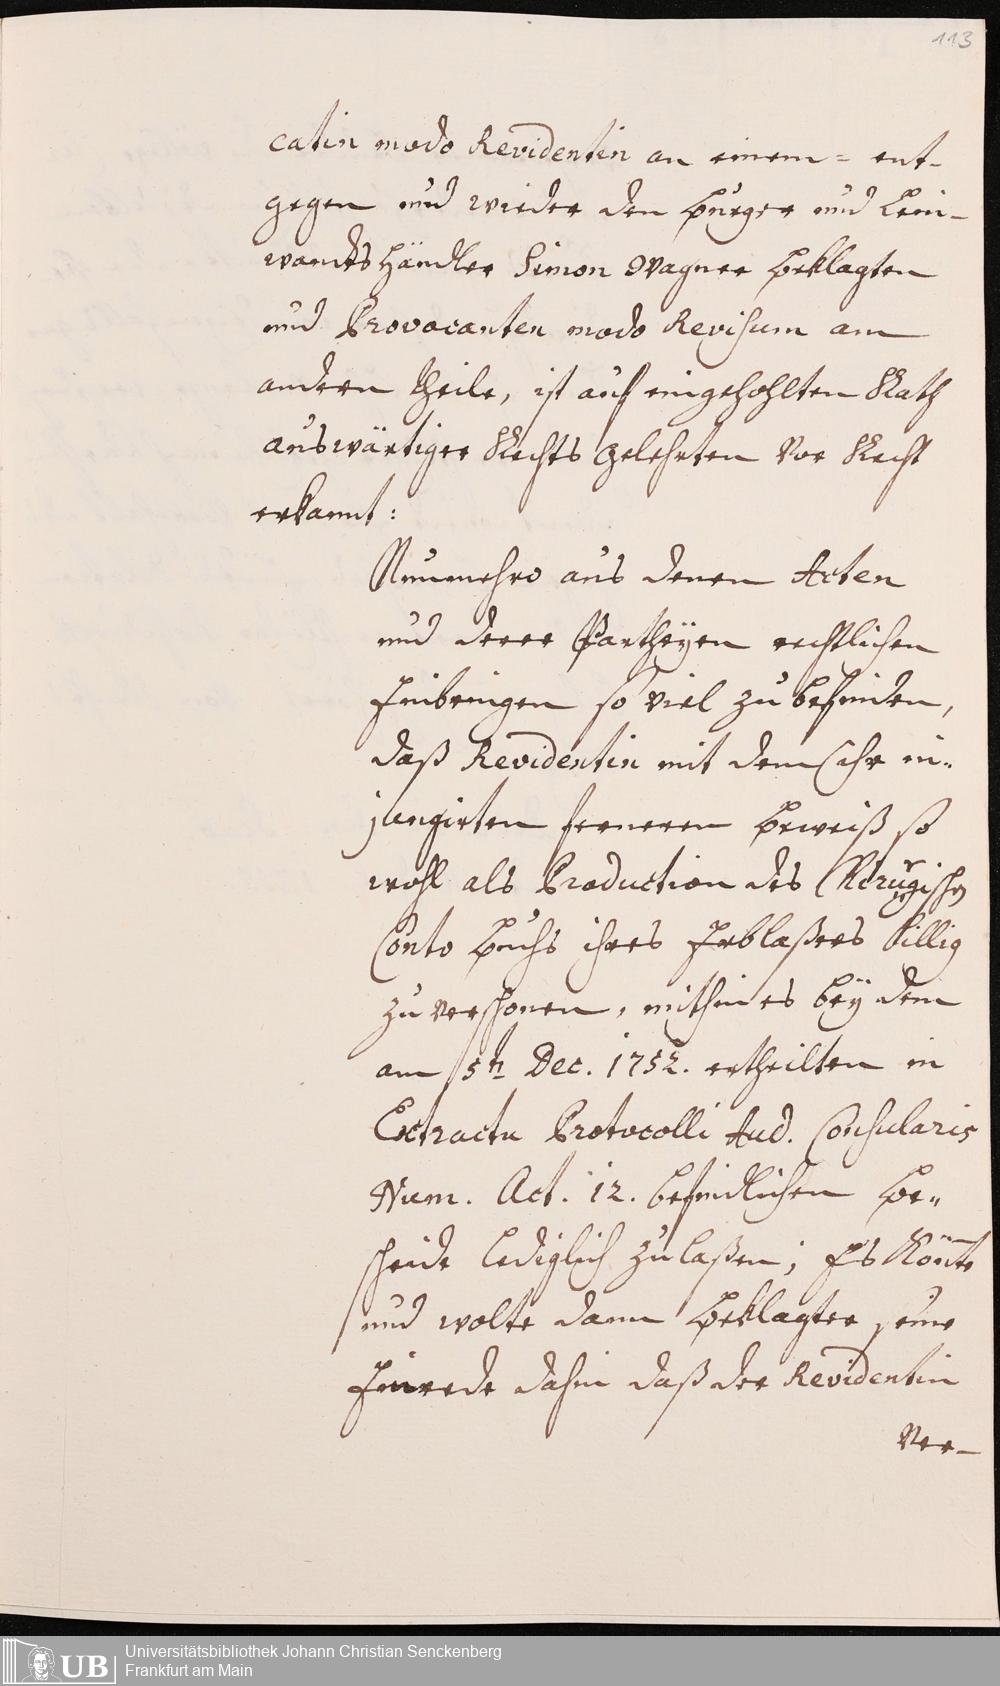 113
catin modo Revidentin an einem= ent-
gegen und wieder den Bürger und Lein-
wandts Händler Simon Wagner Beklagten
und Provocanten modo Revisum am
andern Theile, ist auf eingehohlten Rath
auswärtiger Rechts Gelehrten vor Recht
erkannt:
Nunmehro aus denen Acten
und derer Partheyen rechtlichen
Einbringen so viel zu befinden,
daß Revidentin mit dem Ihr in-
jungirten ferneren Beweiß so
wohl als Production des
Conto Buchs ihres Erblaßers billig
zu verschonen, mithin es beÿ dem
am 5tn Dec. 1752. ertheilten in
Extractu Protocolli Aud. Consularis
Num. Act. 12. befindlichen Be-
scheide lediglich zu laßen; Es könte
und wolte dann Beklagter seine
Einrede dahin daß der Revidentin
Ver-
UB
Universitätsbibliothek Johann Christian Senckenberg
Frankfurt am Main